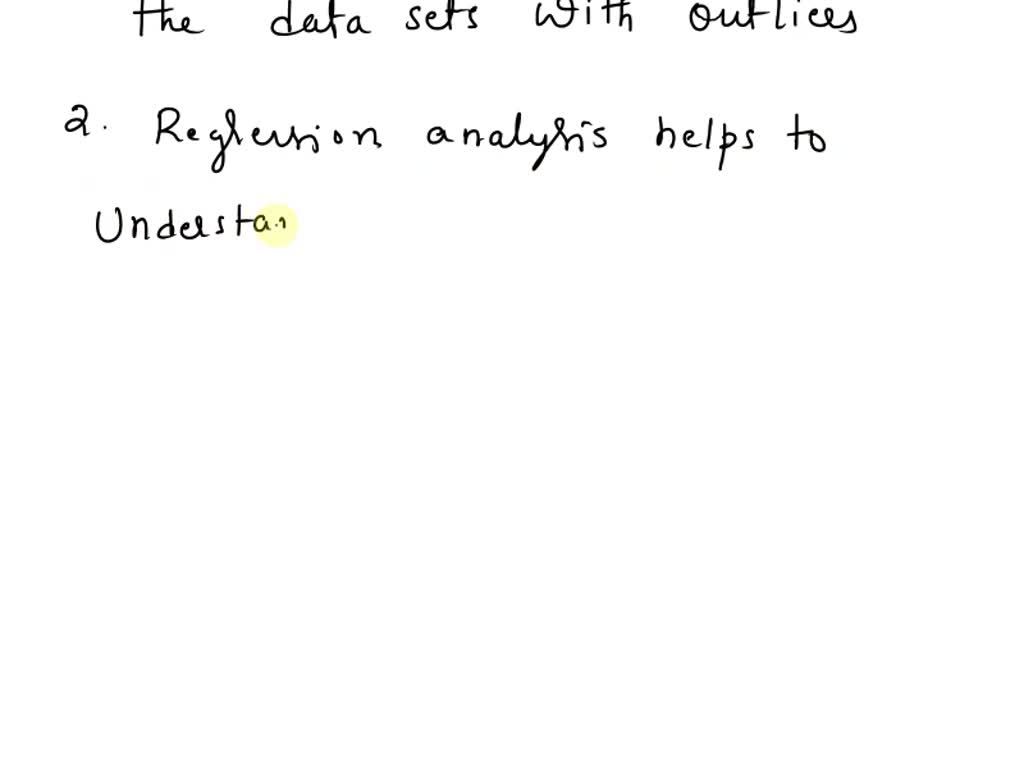 the data sets with outlices
2. Reglession analysis helps to
Understan